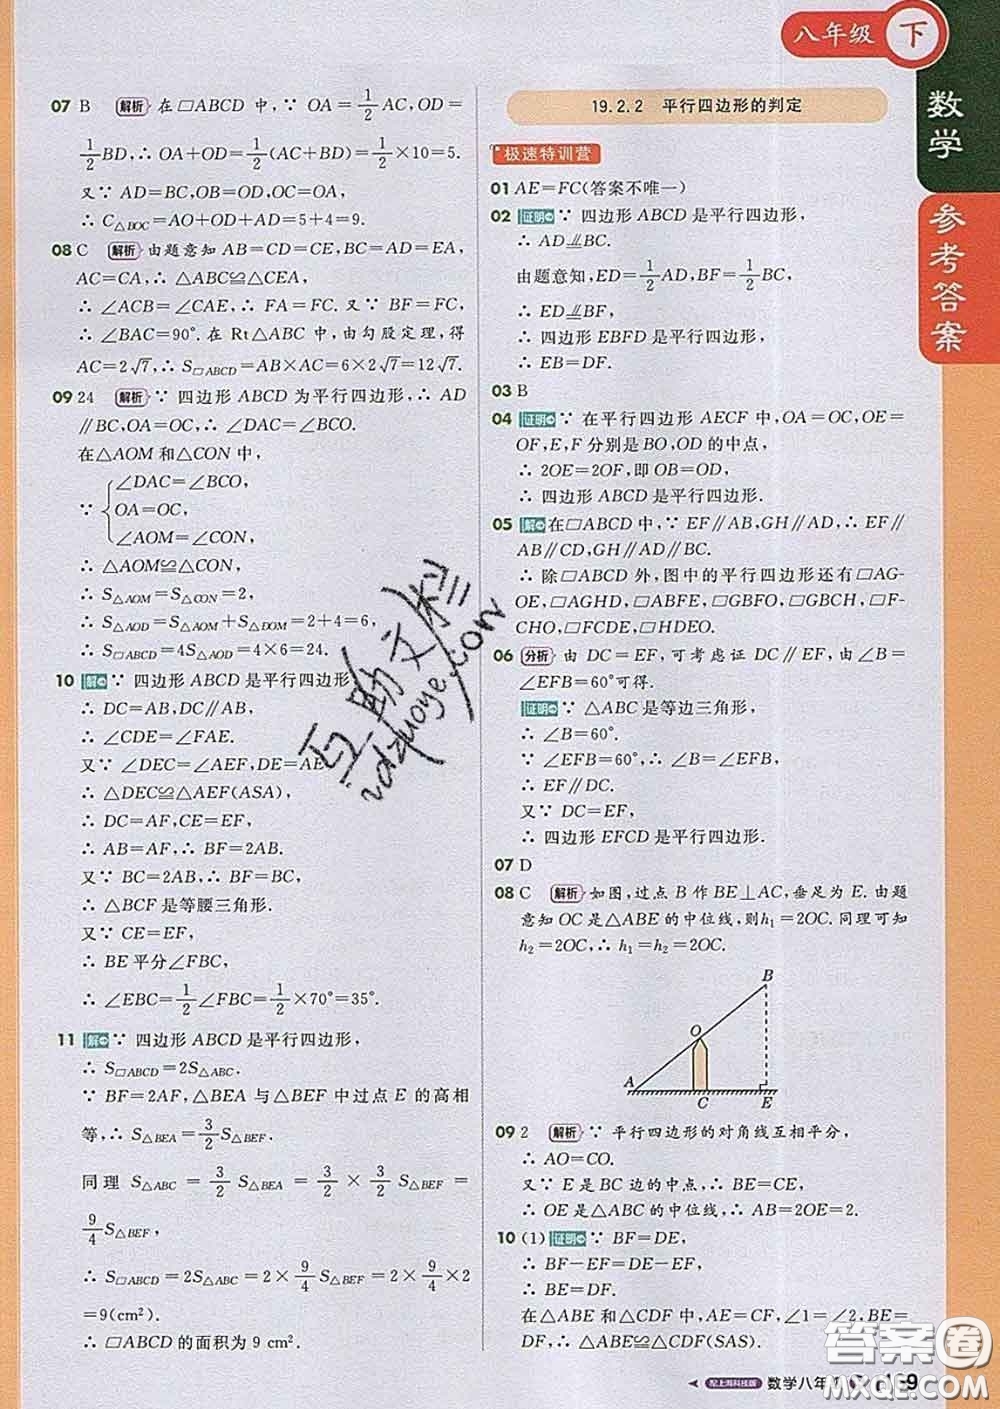 八年级 下
数学
参考答案
07 B 解析 在▱ABCD 中,∵ OA=1/2 AC,OD=
1/2 BD,∴ OA+OD=1/2(AC+BD)=1/2×10=5.
又∵ AD=BC,OB=OD,OC=OA,
∴ C△BOC=AO+OD+AD=5+4=9.
08 C 解析 由题意知 AB=CD=CE,BC=AD=EA,
AC=CA,∴ △ABC≌△CEA,
∴ ∠ACB=∠CAE,∴ FA=FC. 又∵ BF=FC,
∴ ∠BAC=90°. 在 Rt△ABC 中,由勾股定理,得
AC=2√7,∴ S▱ABCD=AB×AC=6×2√7=12√7.
09 24 解析 ∵ 四边形 ABCD 为平行四边形,∴ AD
∥BC,OA=OC,∴ ∠DAC=∠BCO.
在△AOM 和△CON 中,
∠DAC=∠BCO,
∵ OA=OC,
∠AOM=∠CON,
∴ △AOM≌△CON,
∴ S△AOM=S△CON=2,
∴ S△AOD=S△AOM+S△DOM=2+4=6,
∴ S▱ABCD=4S△AOD=4×6=24.
10 解 ∵ 四边形 ABCD 是平行四边形
∴ DC=AB,DC∥AB,
∴ ∠CDE=∠FAE.
又∵ ∠DEC=∠AEF,DE=AE
∴ △DEC≌△AEF(ASA),
∴ DC=AF,CE=EF,
∴ AB=AF,∴ BF=2AB.
又∵ BC=2AB,∴ BF=BC,
∴ △BCF 是等腰三角形.
又∵ CE=EF,
∴ BE 平分∠FBC,
∴ ∠EBC=1/2∠FBC=1/2×70°=35°.
11 解 ∵ 四边形 ABCD 是平行四边形,
∴ S▱ABCD=2S△ABC.
∵ BF=2AF,△BEA 与△BEF 中过点 E 的高相
等,∴ S△BEA=3/2 S△BEF.
同理 S△ABC=3/2 S△BEA=3/2×3/2 S△BEF=
9/4 S△BEF,
∴ S▱ABCD=2S△ABC=2×9/4 S△BEF=2×9/4×2
=9(cm²).
∴ ▱ABCD 的面积为 9 cm².
19.2.2 平行四边形的判定
极速特训营
01 AE=FC(答案不唯一)
02 证明 ∵ 四边形 ABCD 是平行四边形,
∴ AD⫽BC.
由题意知,ED=1/2 AD,BF=1/2 BC,
∴ ED⫽BF,
∴ 四边形 EBFD 是平行四边形,
∴ EB=DF.
03 B
04 证明 ∵ 在平行四边形 AECF 中,OA=OC,OE=
OF,E,F 分别是 BO,OD 的中点,
∴ 2OE=2OF,即 OB=OD,
∴ 四边形 ABCD 是平行四边形.
05 解 在▱ABCD 中,∵ EF∥AB,GH∥AD,∴ EF∥
AB∥CD,GH∥AD∥BC.
∴ 除▱ABCD 外,图中的平行四边形还有▱AG-
OE,▱AGHD,▱ABFE,▱GBFO,▱GBCH,▱F-
CHO,▱FCDE,▱HDEO.
06 分析 由 DC=EF,可考虑证 DC∥EF,由∠B=
∠EFB=60°可得.
证明 ∵ △ABC 是等边三角形,
∴ ∠B=60°.
∵ ∠EFB=60°,∴ ∠B=∠EFB,
∴ EF∥DC.
又∵ DC=EF,
∴ 四边形 EFCD 是平行四边形.
07 D
08 C 解析 如图,过点 B 作 BE⊥AC,垂足为 E. 由题
意知 OC 是△ABE 的中位线,则h₁=2OC. 同理可知
h₂=2OC,∴ h₁=h₂=2OC.
B
O
A C E
09 2 解析 ∵ 平行四边形的对角线互相平分,
∴ AO=CO.
又∵ E 是 BC 边的中点,∴ BE=CE,
∴ OE 是△ABC 的中位线,∴ AB=2OE=2.
10 (1) 证明 ∵ BF=DE,
∴ BF-EF=DE-EF,
∴ BE=DF.
在△ABE 和△CDF 中,AE=CF,∠1=∠2,BE=
DF,∴ △ABE≌△CDF(SAS).
配上海科技版 数学八年
9
答案圈